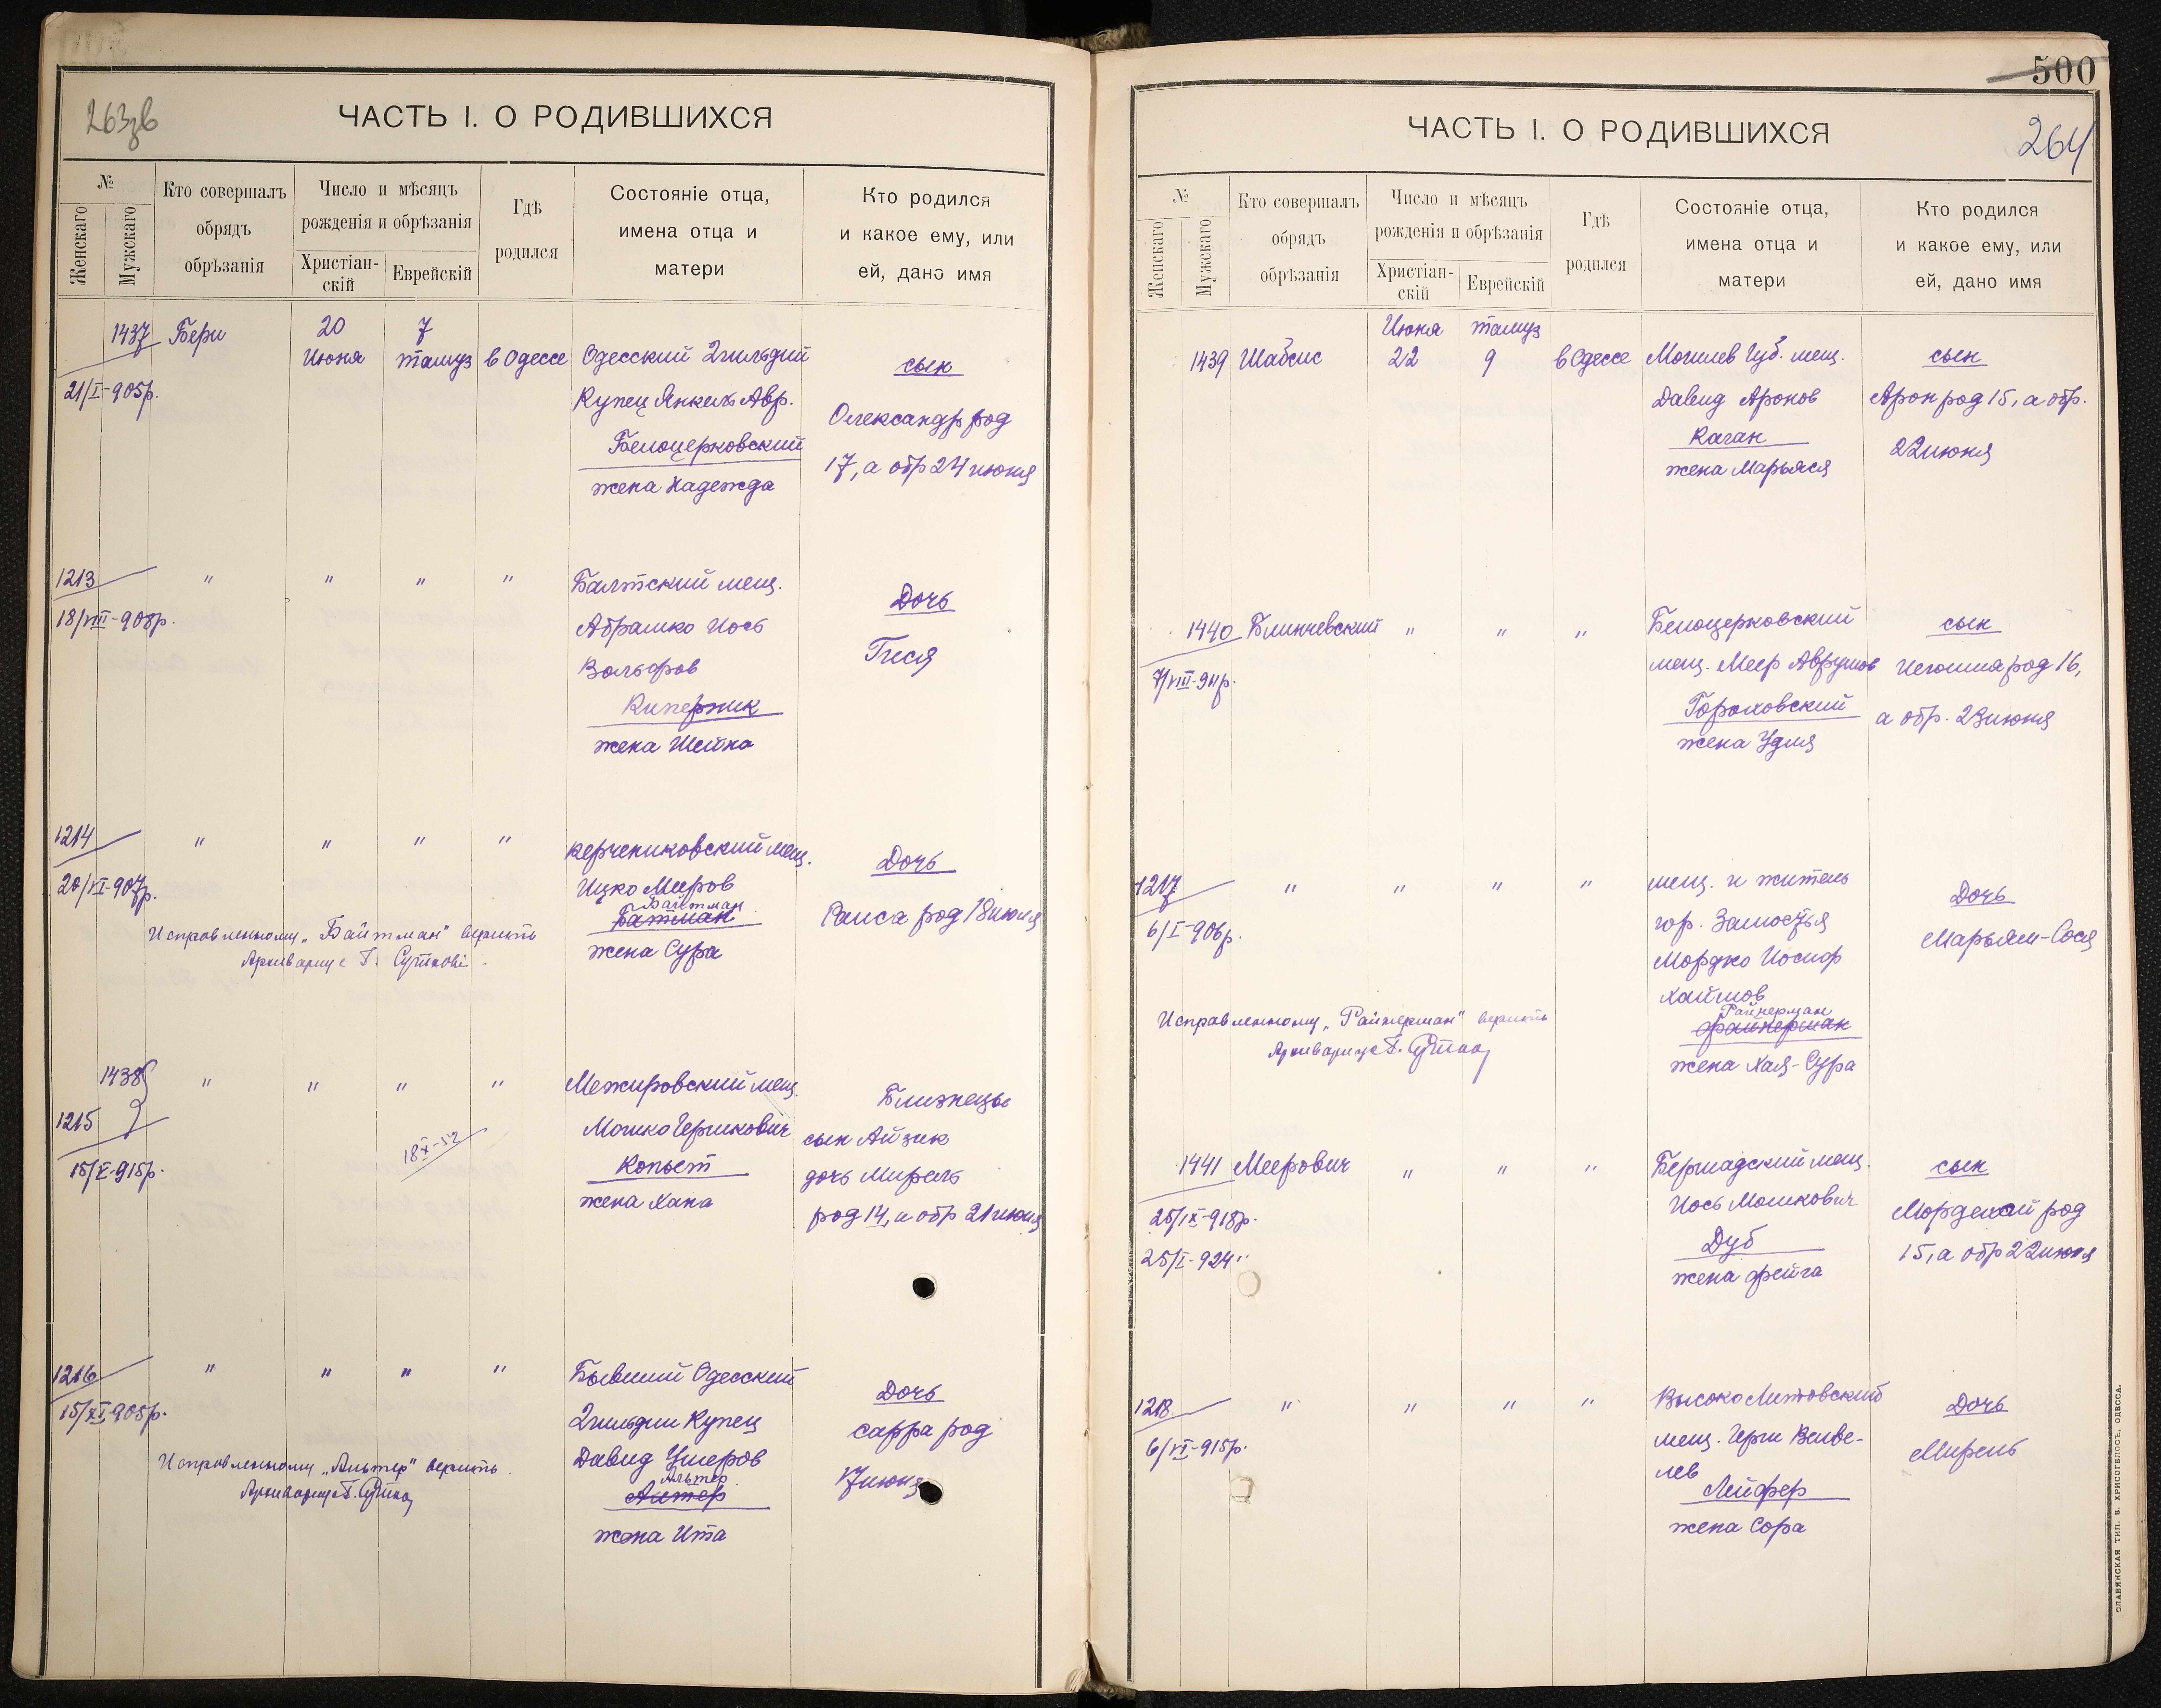 263зв
ЧАСТЬ I. О РОДИВШИХСЯ
№
Женскаго
Мужскаго
Кто совершалъ
обрядъ
обрѣзанія
Число и мѣсяцъ
рожденія и обрѣзанія
Христіан-
скій
Еврейскій
Гдѣ
родился
Состояніе отца,
имена отца и
матери
Кто родился
и какое ему, или
ей, дано имя
1437 Бери 20 7
Июня тамуз в Одессе Одесский 2 гильдии сын
21/I-905р. Купец Янкель Авр. Олександр род
Белоцерковский 17, а обр 24 июня
жена Надежда
1213 " " " " Балтский мещ. Дочь
18/VIII-908р. Абрашко Иось Гися
Вольфов
Кипержик
жена Шейна
1214 " " " " мещ. Дочь
20/VI-907р. Ицко Мееров
Байтман
Батман Раиса род 18 июня
Исправленному "Байтман" верить
жена Сура
1438 " " " " Межировский мещ. Близнецы
1215 Мошко Гершкович сын Айзик
18 X-52
15/X-915р. Копыт дочь Мирель
жена Хана род 14, а обр 21 июня
1216 " " " " Бывший Одесский Дочь
15/XI 905р. 2 гильдии Купец Сарра род
Исправленному "Альтер" верить. Давид Ушеров 17 июня
Альтер
Алтер
жена Ита
500
264
ЧАСТЬ I. О РОДИВШИХСЯ
№
Женскаго
Мужскаго
Кто совершалъ
обрядъ
обрѣзанія
Число и мѣсяцъ
рожденія и обрѣзанія
Христіан-
скій
Еврейскій
Гдѣ
родился
Состояніе отца,
имена отца и
матери
Кто родился
и какое ему, или
ей, дано имя
Июня тамуз
1439 Шабсис 22 9 в Одессе Могилев Губ. мещ. сын
Давид Аронов Арон род 15, а обр.
Каган 22 июня
жена Марьяся
1440 Блинчевский " " " Белоцерковский сын
7/VIII-911р. мещ. Меер Аврумов Иегошиа род 16,
Гороховский а обр. 23 июня
жена Удля
1217 " " " " мещ. и житель Дочь
6/I-906р. гор. Замостья Марьям-Сося
Мордко Иосиф
Хаймов
Исправленному "Райнерман" верить
Райнерман
Файнерман
жена Хая-Сура
1441 Меерович " " " Бершадский мещ. сын
25/IX-918р. Иось Мошкович Мордехай род
25/I-924" Дуб 15, а обр 22 июня
жена Фейга
1218 " " " " Высоко Литовский Дочь
6/VI-915р. мещ. Герш Велве- Мирень
лев
Лейфер
жена Сора
СЛАВЯНСКАЯ ТИП. В. ХРИСОГЕЛОСЪ, ОДЕССА.